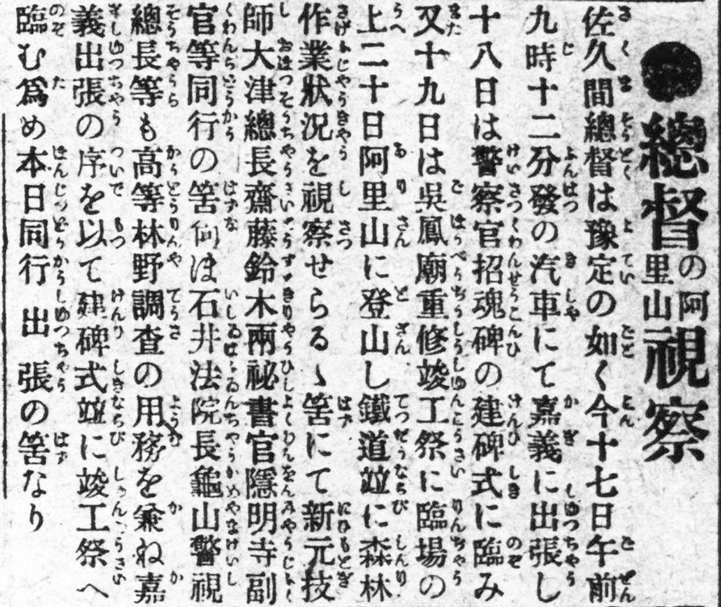 ●總督の阿里山視察
佐久間總督は豫定の如く今十七日午前
九時十二分發の汽車にて嘉義に出張し
十八日は警察官招魂碑の建碑式に臨み
又十九日は吳鳳廟重修竣工祭に臨場の
上二十日阿里山に登山し鐵道竝に森林
作業狀況を視察せらるゝ筈にて新元技
師大津總長齋藤鈴木兩祕書官隱明寺副
官等同行の筈尙ほ石井法院長龜山警視
總長等も高等林野調査の用務を兼ね嘉
義出張の序を以て建碑式竝に竣工祭へ
臨む爲め本日同行出張の筈なり